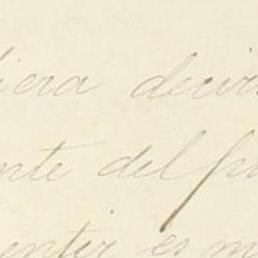 iera decirs
nte del pu
entir es m